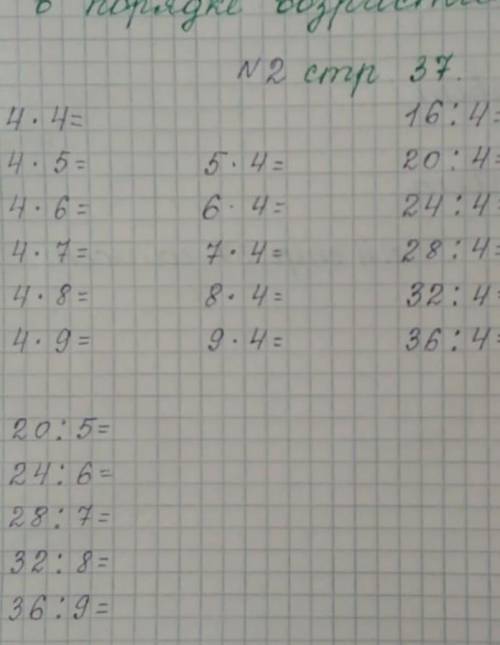 в порядке возрастан
№2 стр 37.
4·4= 16:4=
4·5= 5·4= 20:4=
4·6= 6·4= 24:4=
4·7= 7·4= 28:4=
4·8= 8·4= 32:4=
4·9= 9·4= 36:4=
20:5=
24:6=
28:7=
32:8=
36:9=